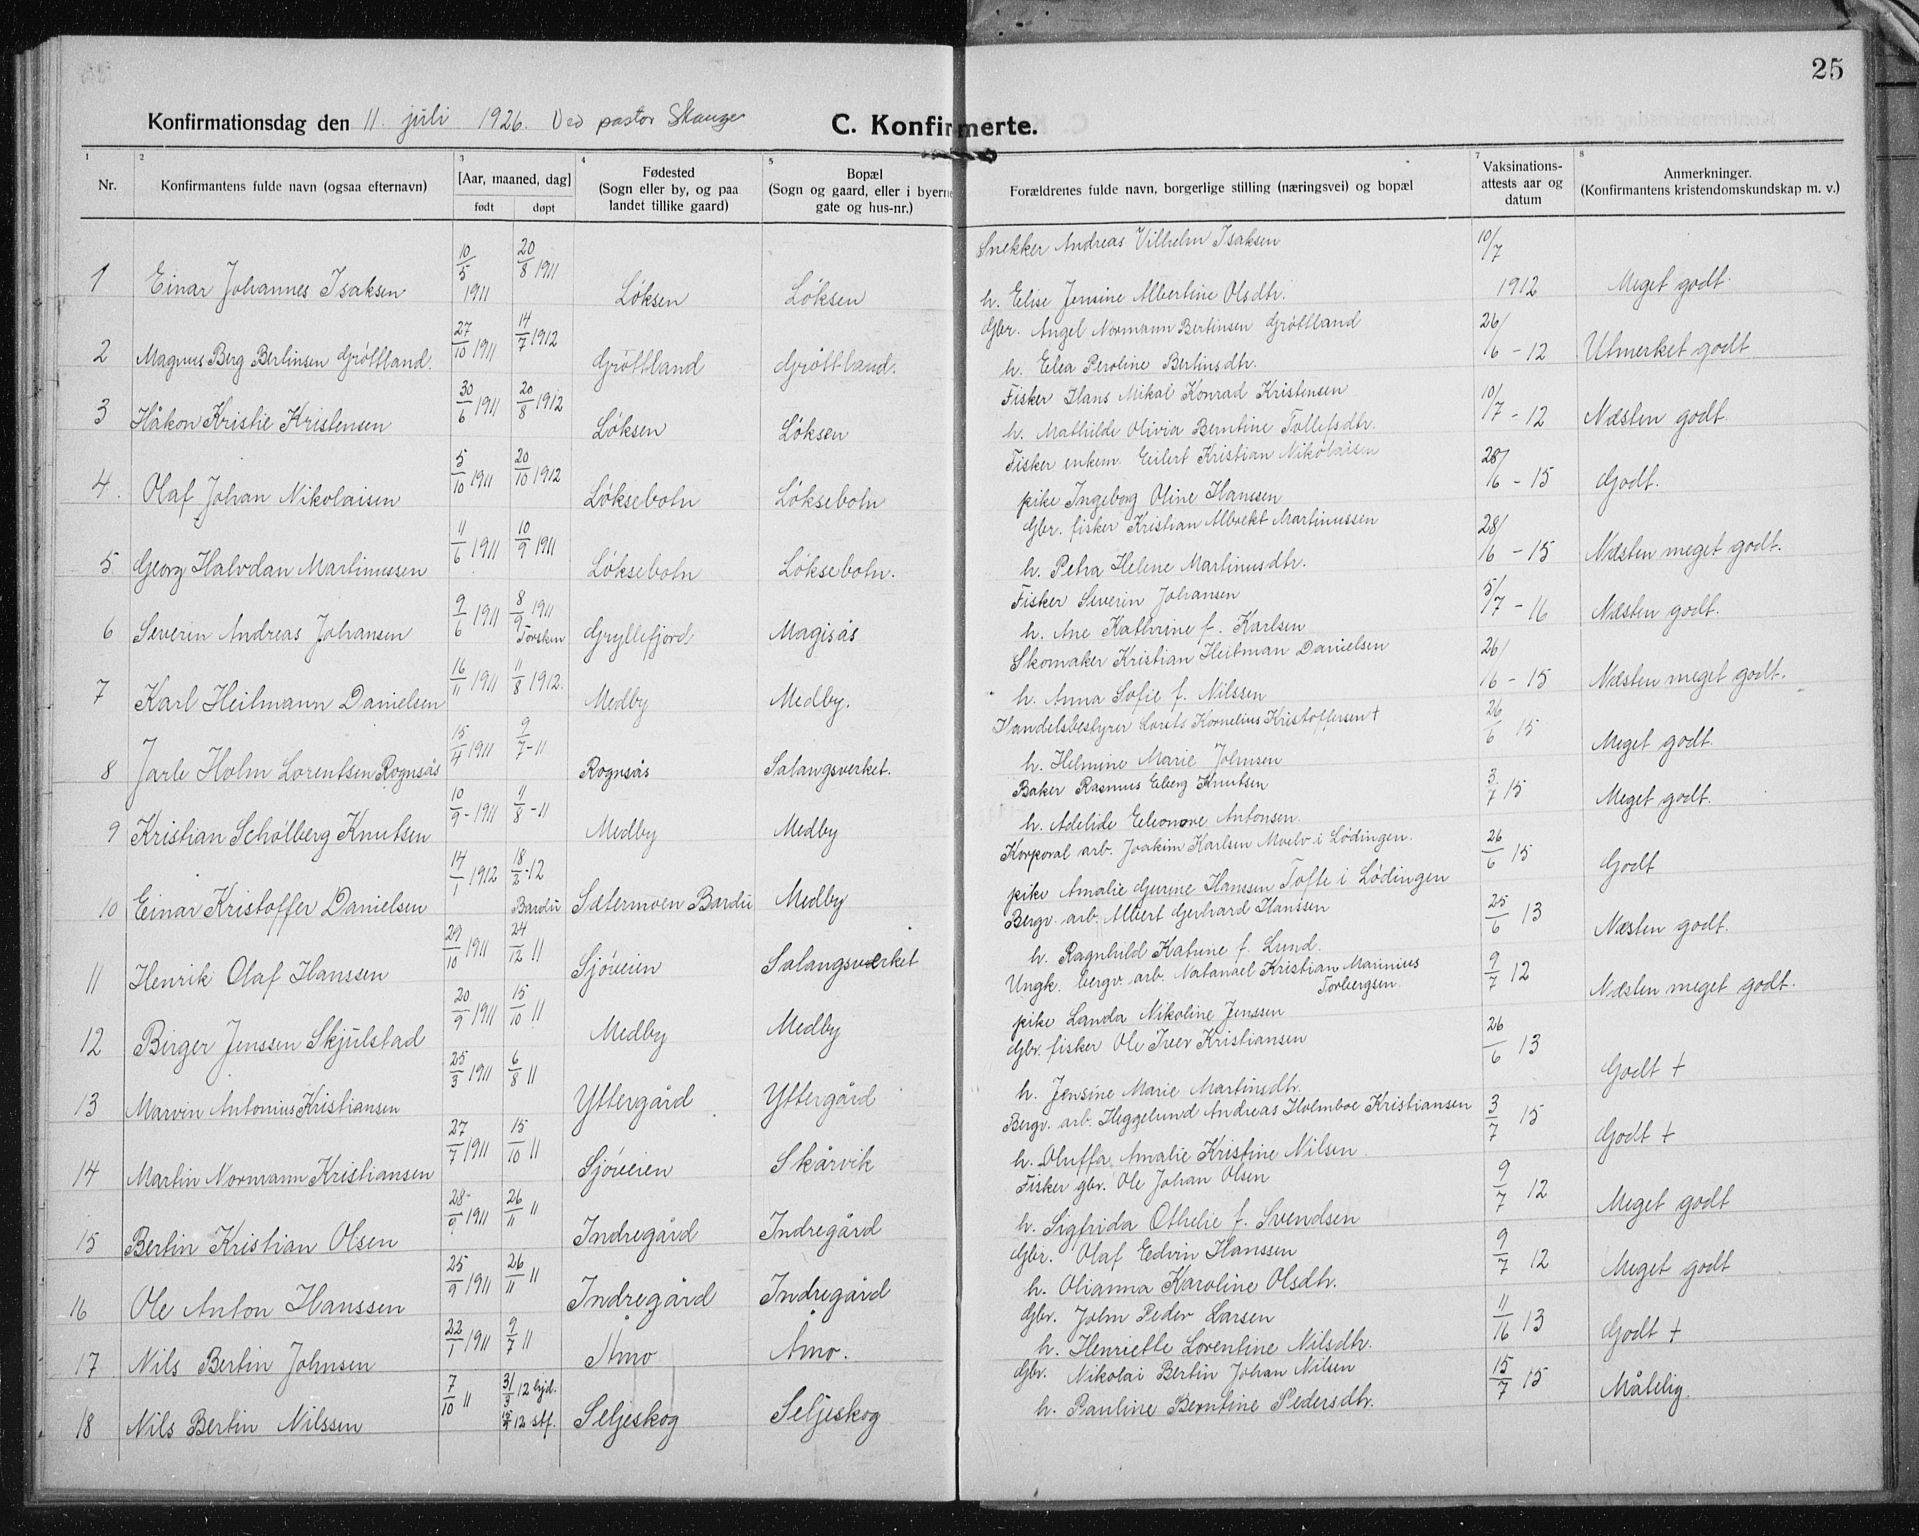 25
Konfirmationsdag den 11. juli 1926. Ved pastor Skauge
C. Konfirmerte.
1 2 3 4 5 7 8
Nr. Konfirmantens fulde navn (ogsaa efternavn) [Aar, maaned, dag] født døpt Fødested (Sogn eller by, og paa landet tillike gaard) Bopæl (Sogn og gaard, eller i byerne gate og hus-nr.) Forældrenes fulde navn, borgerlige stilling (næringsvei) og bopæl Vaksinations-attests aar og datum Anmerkninger. (Konfirmantens kristendomskundskap m. v.)
1 Einar Johannes Isaksen 10/5 1911 20/8 1911 Løksen Løksen Snekker Andreas Vilhelm Isaksen 10/7 1912 Meget godt.
h. Elise Jensine Albertine Olsdtr.
2 Magnus Berg Bertinsen Grøttland. 27/10 1911 14/7 1912 Grøttland Grøttland. Gbr. Angel Normann Bertinsen Grøttland 26/6 - 12 Utmerket godt
h. Elea Peroline Bertinsdtr.
3 Håkon Kristie Kristensen 30/6 1911 20/8 1912 Løksen Løksen Fisker Hans Mikal Konrad Kristensen 10/7 - 12 Næsten godt.
h. Mathilde Olivia Berntine Tollefsdtr.
4. Olaf Johan Nikolaisen 5/10 1911 20/10 1912 Løksebotn Løksebotn Fisker enkem. Eilert Kristian Nikolaisen 28/6 - 15 Godt.
pike Ingeborg Oline Hanssen
5. Georg Halvdan Martinussen 11/6 1911 10/9 1911 Løksebotn Løksebotn. Gbr. fisker Kristian Albrekt Martinussen 28/6 - 15 Næsten meget godt.
h. Petra Helene Martinusdtr.
6 Severin Andreas Johansen 9/6 1911 8/9 1911 Torsken Gryllefjord Magisås Fisker Severin Johansen 5/7 - 16 Næsten godt.
h. Ane Kathrine f. Karlsen
7 Karl Heitmann Danielsen 16/11 1911 11/8 1912. Medby Medby. Skomaker Kristian Heitman Danielsen 26/6 - 15 Næsten meget godt.
h. Anna Sofie f. Nilssen
8 Jarle Holm Lorentsen Rognsås 15/4 1911 9/7 - 11 Rognsås Salangsverket. Handelsbestyrer Lorents Kornelius Kristoffersen + 26/6 15 Meget godt.
h. Helmine Marie Johnsen
9 Kristian Schølberg Knutsen 10/9 - 1911 11/8 - 11 Medby Medby Baker Rasmus Elberg Knutsen 3/7 15 Meget godt.
h. Adelide Eleonore Antonsen.
10 Einar Kristoffer Danielsen 14/1 1912 18/2 - 12 Bardu Sætermoen Bardu Medby Korporal arb. Joakim Karlsen Moelv i Lødingen. 26/6 15 Godt
pike Amalie Gurine Hanssen Tofte i Lødingen
11 Henrik Olaf Hanssen 29/10 1911 24/12 11 Sjøveien Salangsverket Bergv. arb. Albert Gerhard Hanssen 25/6 13 Næsten godt.
h. Ragnhild Katrine f. Lund.
12 Birger Jenssen Skjulstad 20/9 1911 15/10 11 Medby Medby Ungk. bergv. arb. Natanael Kristian Marinius Torbergsen. 9/7 12 Næsten meget godt.
pike Landa Nikoline Jenssen
13 Marvin Antonius Kristiansen 25/3 1911 6/8 11 Yttergård Yttergård Gbr. fisker Ole Iver Kristiansen 26/6 13 Godt +
h. Jensine Marie Martinsdtr.
14 Martin Normann Kristiansen 27/7 1911 15/10 11 Sjøveien Skårvik Bergv. arb. Heggelund Andreas Holmboe Kristiansen 3/7 15 Godt +
h. Oluffa Amalie Kristine Nilsen.
15 Bertin Kristian Olsen 28/9 1911 26/11 11 Indregård Indregård Fisker gbr. Ole Johan Olsen 9/7 12 Meget godt
h. Sigfrida Othelie f. Svendsen
16 Ole Anton Hanssen 25/9 1911 26/11 11 Indregård Indregård Gbr. Olaf Edvin Hanssen 9/7 12 Meget godt
h. Olianna Karoline Olsdtr.
17 Nils Bertin Johnsen 22/1 1911 9/7 11 Åmo Åmo. Gbr. John Peder Larsen 11/16 13 Godt +
h. Henriette Lorentine Nilsdtr.
18 Nils Bertin Nilssen 7/10 11 31/3 12 hjd. 12 stf. Seljeskog Seljeskog Gbr. Nikolai Bertin Johan Nilsen 15/7 15 Måtelig.
h. Pauline Berntine Pedersdtr.